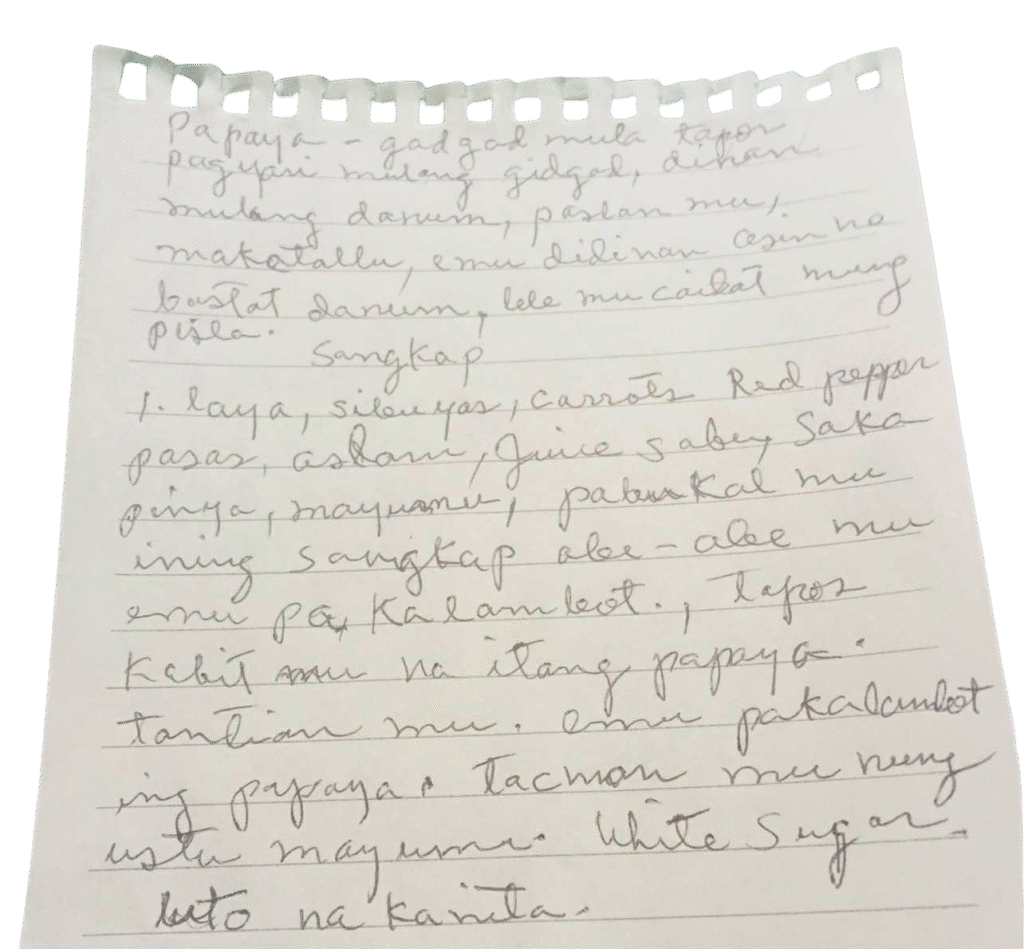 Papaya - gadgad mula tapos
pagyari mulang gidgad, dinan
mulang danum, paslan mu,
makatallu, emu didinan asin na
bastat danum, lele mu caibat mung
pisla.
Sangkap
1. laya, sibuyas, carrots Red pepper
pasas, aslam, Juice sabe, saka
pinya, mayumu, pabukal mu
ining sangkap abe-abe mu
emu pa kalambot., tapos
kabit mu na itang papaya.
tantian mu. emu pakalambot
ing papaya. tacman mu nung
ustu mayumu. White Sugar.
luto na kanita.